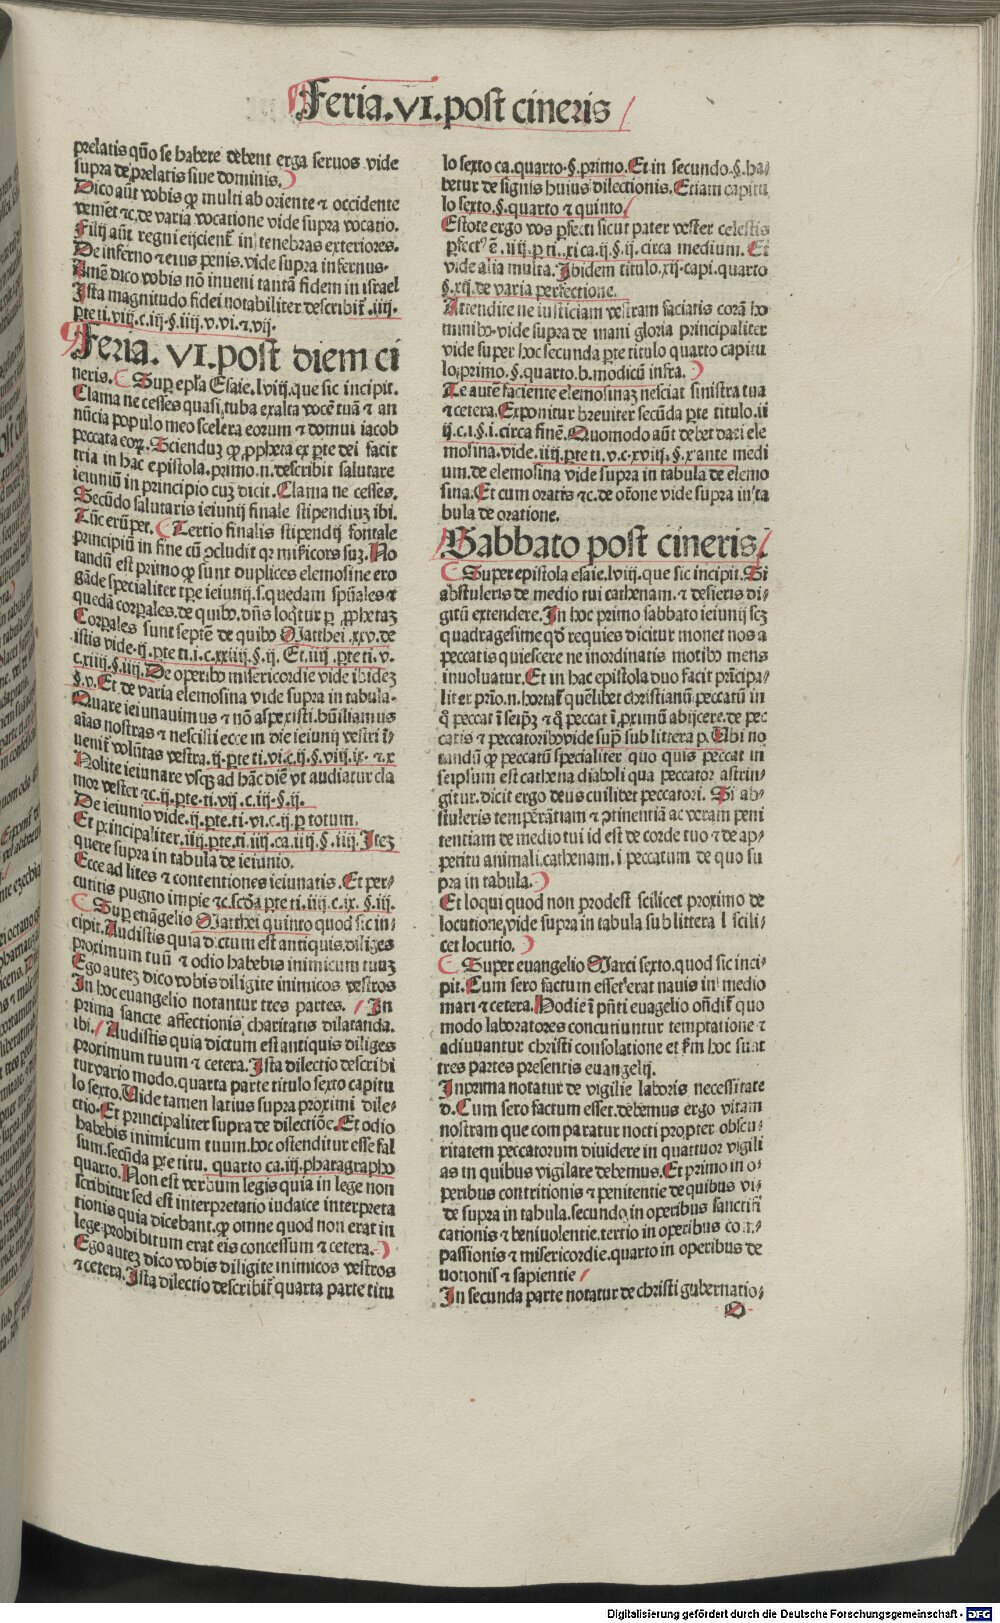 Feria.VI.post cineris
prelatis qño se habere debent erga seruos vide
supra de prelatis siue dominis.
Dico aūt vobis ꝙ multi ab oriente ⁊ occidente
venient ⁊c.de varia vocatione vide supra vocatio.
Filij aūt regni eijcient in tenebras exteriores.
De inferno ⁊ eius penis.vide supra infernus.
Amē dico vobis nō inueni tantā fidem in israel
Ista magnitudo fidei notabiliter describit .iiij.
pte ti.viij.c.iij.§.iiij.v.vi.⁊.vij.
Feria.VI.post diem ci
neris. Sup epla Esaie.lviij.que sic incipit.
Clama ne cesses quasi tuba exalta vocē tuā ⁊ an
nūcia populo meo scelera eorum ⁊ domui iacob
peccata eoꝝ. Sciendum ꝙ ꝓpheta ex pte dei facit
tria in hac epistola.primo.n.describit salutare
ieiuniū in principio cuꝫ dicit. Clama ne cesses.
Secūdo salutaris ieiunij finale stipendiuꝫ ibi.
Tūc erūpet. Tertio finalis stipendij fontale
principiū in fine cū ꝯcludit qꝛ misericors suꝫ. No
tandū est primo ꝙ sunt duplices elemosine ero
gāde specialiter tpe ieiunij.s.quedam spūales ⁊
quedā corpales.de quibꝰ.dñs loqtur p ꝓphetaꝫ
Corpales sunt septē de quibꝰ Matthei.xxv.de
istis vide.ij.pte ti.i.c.xxiiij.§.ij. Et.iiij.pte ti.v.
c.xiiij.§.iiij. De operibꝰ misericordie vide ibideꝫ
§.v. Et de varia elemosina vide supra in tabula.
Quare ieiunauimus ⁊ nō aspexisti.hūiliamus
aīas nostras ⁊ nescisti ecce in die ieiunij vestri ī-
uenit volūtas vestra.ij.pte ti.vi.c.ij.§.viij.ix.⁊.x
Nolite ieiunare vsqꝫ ad hāc diē vt audiatur cla
mor vester ⁊c.ij.pte.ti.vij.c.iij.§.ij.
De ieiunio vide.ij.pte.ti.vi.c.ij.p totum.
Et principaliter.iiij.pte.ti.iiij.ca.iiij.§.iiij. Iteꝫ
quere supra in tabula de ieiunio.
Ecce ad lites ⁊ contentiones ieiunatis. Et per-
cutitis pugno impie ⁊c.scda pte ti.iiij.c.ix.§.iij.
Sup euāgelio Matthei quinto quod sic in-
cipit. Audistis quia dictum est antiquis.diliges
proximum tuū ⁊ odio habebis inimicum tuuꝫ
Ego auteꝫ dico vobis diligite inimicos vestros
In hoc euangelio notantur tres partes. In
prima sancte affectionis charitatis dilatanda.
ibi. Audistis quia dictum est antiquis diliges
proximum tuum ⁊ cetera. Ista dilectio describi
tur vario modo.quarta parte titulo sexto capitu
lo sexto. Vide tamen latius supra proximi dile-
ctio. Et principaliter supra de dilectiōe. Et odio
habebis inimicum tuum.hoc ostenditur esse fal
sum.secūda pte titu. quarto ca.iij.pharagrapho
quarto. Non est verbum legis quia in lege non
scribitur sed est interpretatio iudaice interpreta
tionis quia dicebant.ꝙ omne quod non erat in
lege prohibitum erat eis concessum ⁊ cetera.
Ego auteꝫ dico vobis diligite inimicos vestros
⁊ cetera. Ista dilectio describit quarta parte titu
lo sexto ca.quarto.§.primo. Et in secundo.§.ha-
betur de signis huius dilectionis. Etiam capitu
lo sexto.§.quarto ⁊ quinto
Estote ergo vos pfecti sicut pater vester celestis
pfectꝰ ē .iiij.p ti..xi ca.ij.§.ij.circa medium. Et
vide alia multa. Ibidem titulo.xij.capi.quarto
§.xij.de varia perfectione.
Attendite ne iusticiam vestram faciatis corā ho
minibꝰ.vide supra de inani gloria principaliter
vide super hoc secunda pte titulo quarto capitu
lo primo.§.quarto.b.modicū infra.
Te autē faciente elemosinaꝫ nesciat sinistra tua
⁊ cetera. Exponitur breuiter secūda pte titulo.ii
ij.c.i.§.i.circa finē. Quomodo aūt debet dari ele
mosina.vide.iiij.pte ti.v.c.xviij.§.x ante medi
um.de elemosina vide supra in tabula de elemo
sina. Et cum oratis ⁊c.de orōne vide supra in ta
bula de oratione.
Sabbato post cineris.
Super epistola esaie.lviij.que sic incipit. Si
abstuleris de medio tui cathenam.⁊ desieris di-
gitū extendere. In hoc primo sabbato ieiunij scꝫ
quadragesime qd requies dicitur monet nos a
peccatis quiescere ne inordinatis motibꝰ mens
inuoluatur. Et in hac epistola duo facit prīcipa-
liter prīo.n.hortat quēlibet christianū peccatū in
ꝗ peccat ī seipꝫ ⁊ ꝗ peccat ī ꝓximū abijcere.de pec
catis ⁊ peccatoribꝰ vide sup sub littera p. Vbi no
tandū ꝙ peccatū specialiter quo quis peccat in
seipsum est cathena diaboli qua peccator astrin-
gitur.dicit ergo deus cuilibet peccatori. Si ab-
stuleris temperātiam ⁊ ꝯtinentiā ac veram peni
tentiam de medio tui id est de corde tuo ⁊ de ap-
petitu animali.cathenam.i peccatum de quo su
pra in tabula.
Et loqui quod non prodest scilicet proximo de
locutione vide supra in tabula sub littera l scili-
cet locutio.
Super euangelio Marci sexto.quod sic inci-
pit. Cum sero factum esset erat nauis in medio
mari ⁊ cetera. Hodie ī pñti euagelio oñdit quo
modo laboratores concutiuntur temptatione ⁊
adiuuantur christi consolatione et sm hoc sunt
tres partes presentis euangelij.
In prima notatur de vigilie laboris necessitate
d. Cum sero factum esset.debemus ergo vitam
nostram que comparatur nocti propter obscu-
ritatem peccatorum diuidere in quattuor vigili
as in quibus vigilare debemus. Et primo in o-
peribus contritionis ⁊ penitentie de quibus vi-
de supra in tabula.secundo in operibus sanctifi
cationis ⁊ beniuolentie.tertio in operibus com-
passionis ⁊ misericordie.quarto in operibus de
uotionis ⁊ sapientie
In secunda parte notatur de christi gubernatio-
O
Digitalisierung gefördert durch die Deutsche Forschungsgemeinschaft - DFG